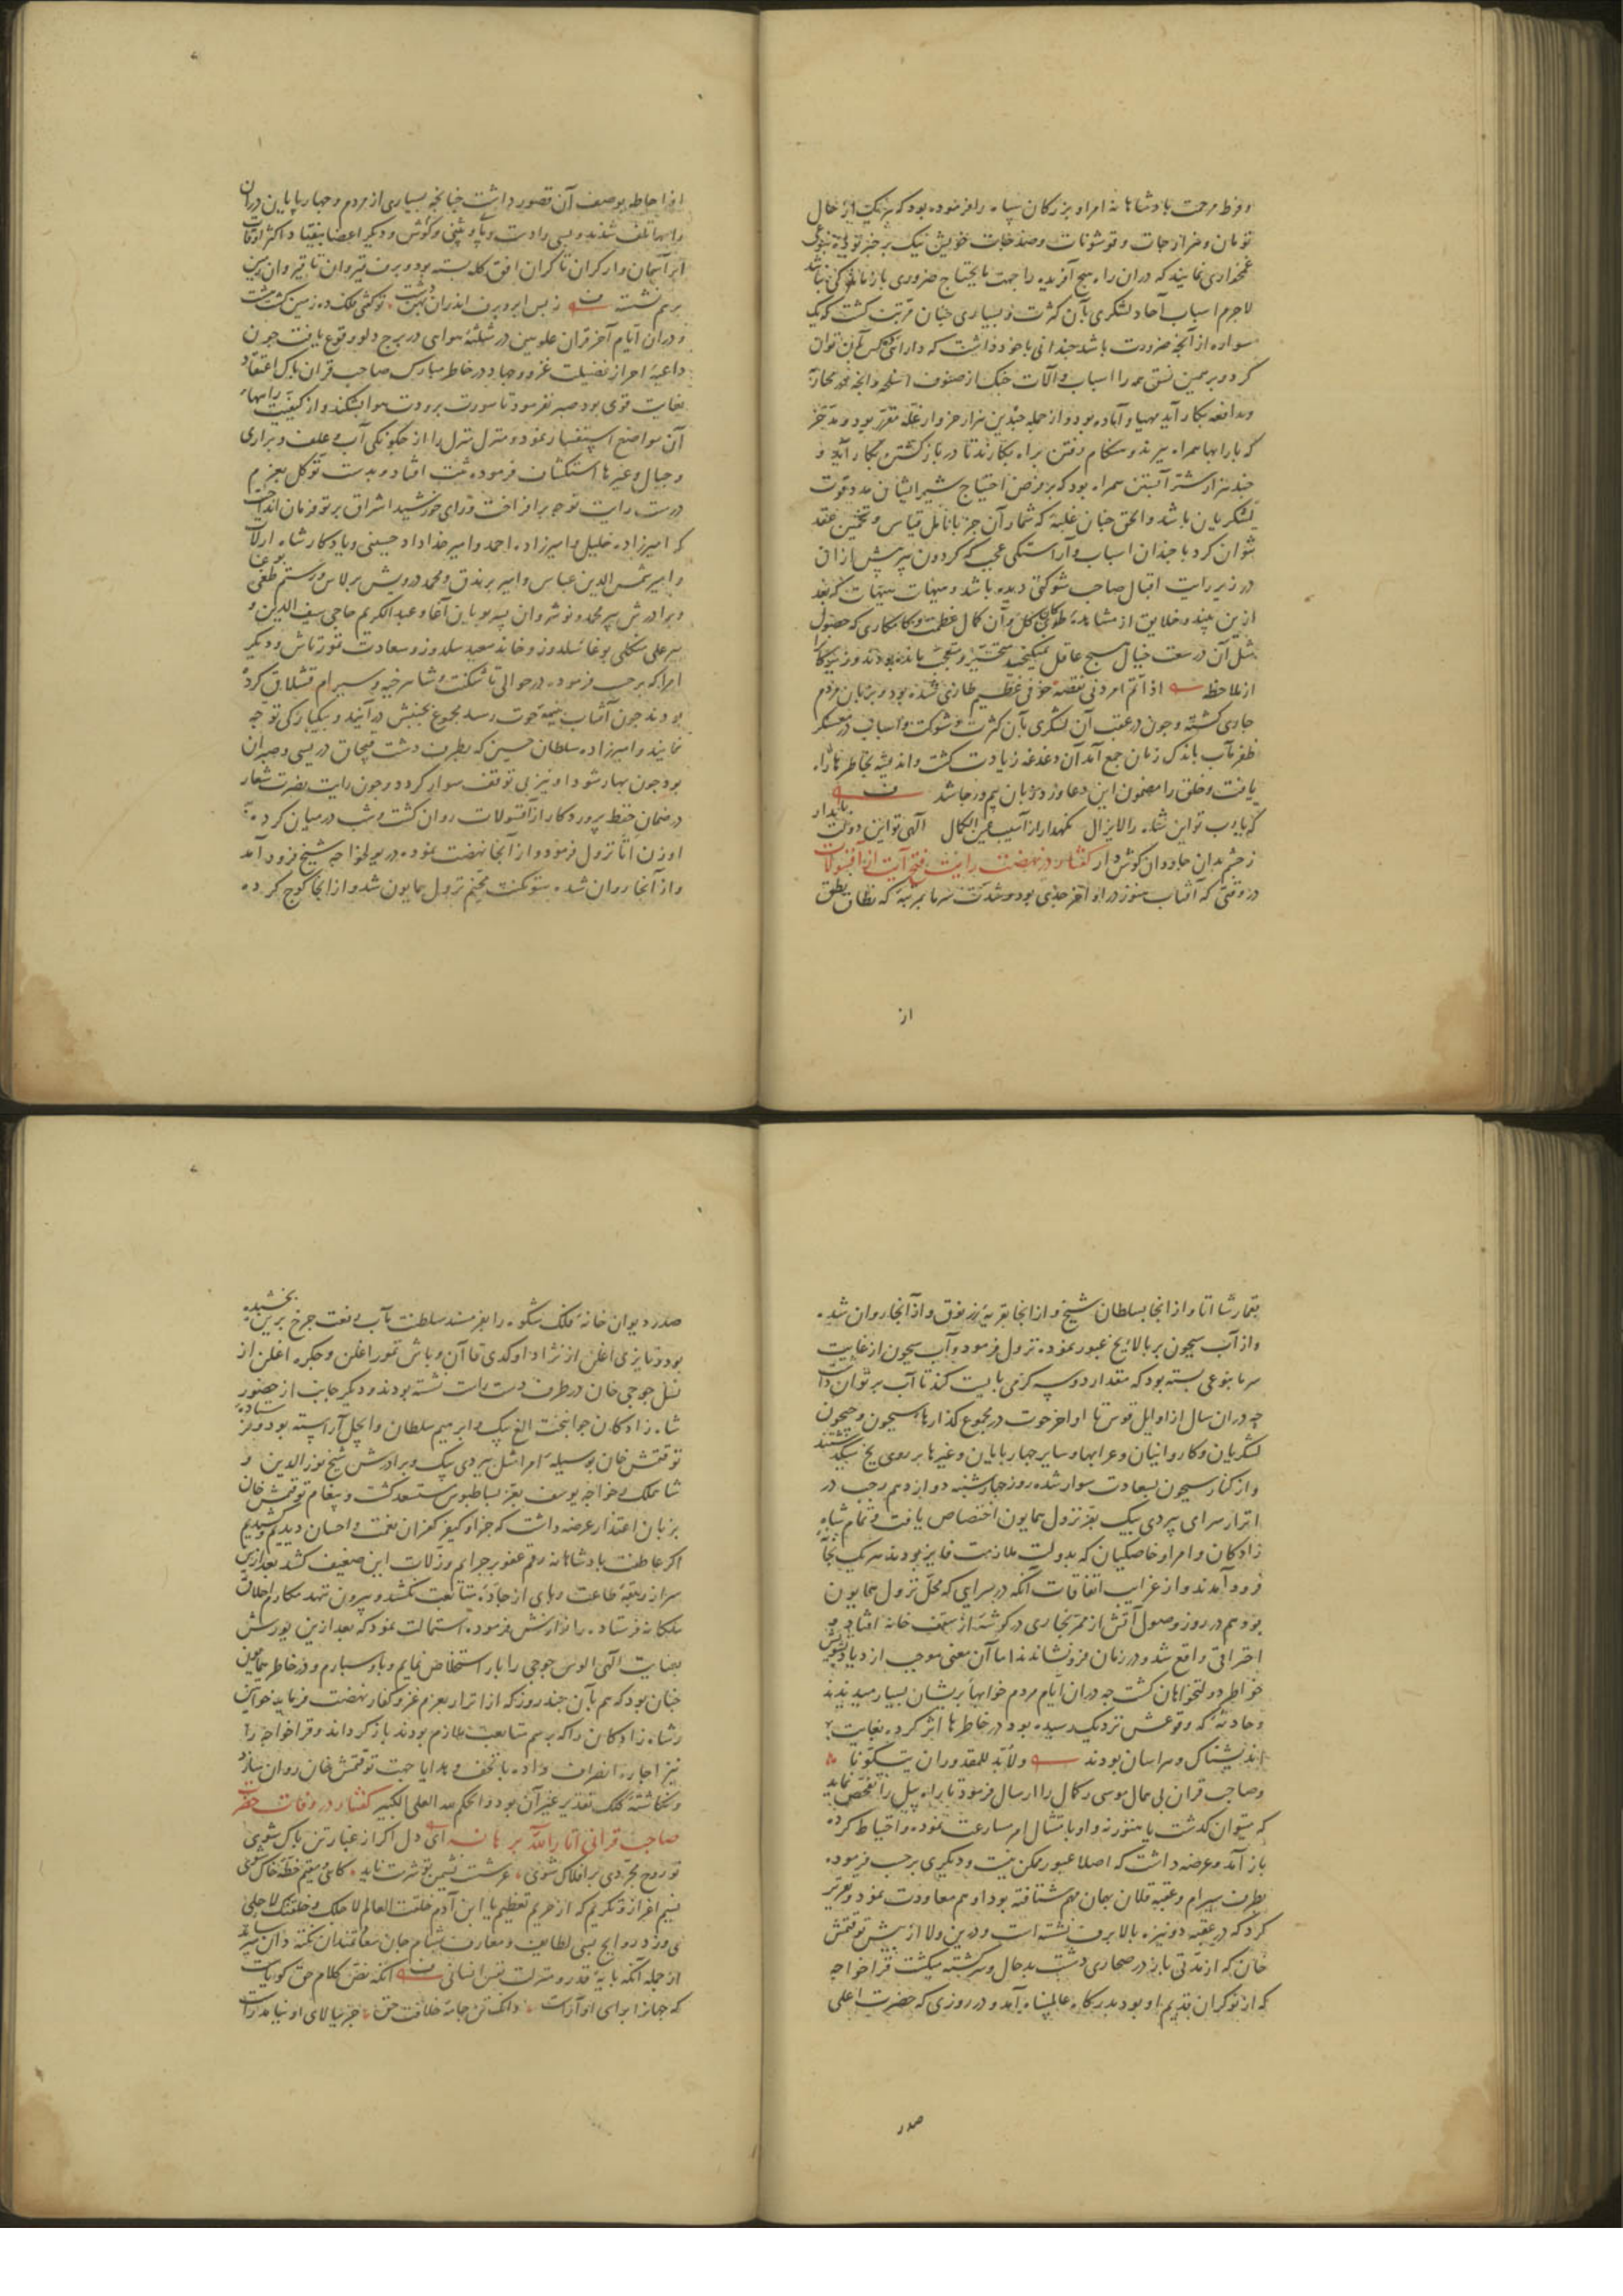 وفرط مرحمت بادشاهانه امرا و بزرکان سپاه را فرموده بود که هریک از حال
تومان و هزارجات و قوشونات و صدجات خویش نیک برخبر بوده بنوعی
غمخواری نمایند که دران راه هیچ آفریده را جهت مایحتاج ضروری بازماندکی نباشد
لاجرم اسباب آحاد لشکری بآن کثرت و بسیاری جنان مرتب کشت که یک
سواره از آنجه ضرورت باشد جندانی با خود داشت که
کرد و برهمین نسق همه را اسباب و آلات جنک از صنوف اسلحه و آنجه در محاربه
و مدافعه بکار آید مهیا و آماده بود و از جمله جندین هزار خروار غله مقرر بود
که بارابها همراه ببرند و هنکام رفتن براه بکارند تا در بازکشتن بکار آید و
جند هزار شتر آبستن همراه بود که بر فرض احتیاج شیر ایشان مدد قوت
لشکریان باشد والحق جنان غلبه که شمار آن جز بانامل قیاس و تخمین عقد
نتوان کرد با جندان اسباب و آراستکی عجب که کردون پیر پیش ازان
در زیر رایت اقبال صاحب شوکتی دیده باشد و هیهات هیهات که بعد
ازین بیند و خلایق از مشاهده آن کمال عظمت و کامکاری که حصول
مثل آن در سعت خیال هیچ عاقل نمیکنجد متحیر و متعجب مانده بودند و زیرکان را
از ملاحظه اذا تم امر دنی نقصه خوفی عظیم طاری شده بود و بر زبان مردم
جاری کشته وجون در عقب آن لشکری بآن کثرت و شوکت و اسباب در معسکر
ظفر مآب باندک زمان جمع آمد آن دغدغه زیادت کشت و اندیشه بخاطرها راه
یافت و خلق را مضمون این دعا ورد زبان بیم و رجا شد
که یارب تو این شاه را لایزال نکهدار از آسیب عین الکمال الهی تو این دولت پایدار
ز جشم بدان جاودان کوش دار کفتار در نهضت رایت فتح آیت از اقسولات
در وقتی که آفتاب هنوز در اواخر جدی بود و شدت سرما بمرتبه که نطاق نطق
از
از احاطه بوصف آن قصور داشت جنانجه بسیاری از مردم و جهار پایان دران
راهها تلف شدند و بسی را دست و پا و بینی و کوش و دیکر اعضا بیفتاد اکثر اوقات
ابر آسمان وار کران تا کران افق کله بسته بود و برف قیروان تا قیروان زمین
برهم نشسته ز بس ابر و برف اندران بهن دشت توکفتی فلک ده زمین کشت هشت
و دران ایام آخر قران علویین در مثلثه هوای در برج دلو وقوع یافت جون
داعیه احراز فضیلت غزو و جهاد در خاطر مبارک صاحب قران پاک اعتقاد
بغایت قوی بود صبر نفرمود تا سورت برودت هوا بشکند و از کیفیت راهها
آن مواضع استفسار نمود و منزل منزل را از جکونکی آب و علف و براری
و جبال و غیرها استکشاف فرموده ثبت افتاد و بدست توکل بعزم
درست رایت توجه برافراخت و رای خورشید اشراق پرتو فرمان انداخت
که امیرزاده خلیل و امیرزاده احمد و امیر خداداد حسینی و یادکار شاه ارلات
و امیر شمس الدین عباس و امیر برندق و محمد درویش برلاس و رستم طغی بوغا
و برادرش پیر محمد و نوشروان پسر بویان آغا و عبد الکریم حاجی سیف الدین و
پیر علی منکلی بوغا سلدوز و خاند سعید سلدوز و سعادت تمورتاش و دیکر
امرا که برحسب فرموده در حوالی تاشکنت و شاهرخیه و سیرام قشلاق کرده
بودند جون آفتاب بنیمه حوت رسد مجموع بجنبش درآیند و بیکبارکی توجه
نمایند و امیرزاده سلطان حسین که بطرف دشت قبجاق در یسی و صبران
بود جون بهار شود او نیز بی توقف سوار کردد و جون رایت نصرت شعار
در ضمان حفظ پروردکار از آقسولات روان کشت و شب درمیان کرده
اوزن اتا نزول فرمود و از آنجا نهضت نموده در بولغو اجه شیخ فرود آمد
و از آنجا روان شده بتوکت مخیم نزول همایون شد و از آنجا کوج کرده
بتمار شا اتا و از آنجا بسلطان شیخ و از آنجا بقریه زرنوق و از آنجا روان شده
و از آب سیحون بر بالای یخ عبور نموده نزول فرمود و آب سیحون از غایت
سرما بنوعی بسته بود که مقدار دو سه کز می بایست کند تا آب برتوان داشت
جه دران سال از اوایل قوس تا اواخر حوت در مجموع کذارهای سیحون و جیحون
لشکریان و کاروانیان و عرابها و سایر جهارپایان و غیرها بر روی یخ میکذشتند
و از کنار سیحون بسعادت سوار شده روز جهارشنبه دوازدهم رجب در
اترار سرای پیردی بیک بعز نزول همایون اختصاص یافت و تمام شاه
زادکان و امرا و خاصکیان که بدولت ملازمت فایز بودند هر یک بخانه
فرود آمدند و از غرایب اتفاقات آنکه در سرایی که محل نزول همایون
بود هم در روز وصول آتش از ممر بخاری در کوشه از سقف خانه افتاد و
احتراقی واقع شد و در زمان فرونشاندند اما آن معنی موجب ازدیاد تشویش
خواطر دولتخواهان کشت جه دران ایام مردم خوابهای پریشان بسیار میدیدند
و حادثه که وقوعش نزدیک رسیده بود در خاطرها اثر کرده بغایت
اندیشناک و هراسان بودند ولابد للمقدور ان یتکونا
و صاحب قران بی همال موسی رکمال را ارسال فرمود تا راه پیل را تفحص نماید
که میتوان کذشت یا هنوز نه و او بامتثال امر مسارعت نموده و احتیاط کرده
باز آمد و عرضه داشت که اصلا عبور ممکن نیست و دیکری برحسب فرموده
بطرف سیرام و عقبه قلان بجان مهم شتافته بود او هم معاودت نمود و تقریر
کرد که در عقبه دو نیزه بالا برف نشسته است و درین ولا از پیش توقتمش
خان که از مدتی باز در صحاری دشت بدحال و سرکشته میکشت قراخواجه
که از نوکران قدیم او بود بدرکاه عالمپناه آمد و در روزی که حضرت اعلی
صدر
صدر دیوان خانه فلک شکوه را بفر مسند سلطنت مآب رفعت جرخ برین بخشیده
بود و تایزی اغلن از نژاد اوکدی قاآن و باش تمور اغلن و جکره اغلن از
نسل جوجی خان در طرف دست راست نشسته بودند و دیکر جانب از حضور
شاه زادکان جوانبخت الغ بیک و ابرهیم سلطان و ایجل آراسته بود و فرستاده
توقتمش خان بوسیله امرا مثل بیردی بیک و برادرش شیخ نورالدین و
شاهملک و خواجه یوسف بعز بساطبوس مستسعد کشت و پیغام توقتمش خان
بزبان اعتذار عرضه داشت که جزا و کیفر کفران نعمت و احسان دیدیم و کشیدیم
اکر عاطفت بادشاهانه رقم عفو بر جرایم و زلات این ضعیف کشد بعد ازین
سر از ربقه طاعت و پای از جاده متابعت نکشد و بیرون ننهد مکارم اخلاق
ملکانه فرستاده را نوازش فرموده استمالت نمود که بعد ازین یورش
بعنایت الهی الوس جوجی را باز استخلاص نمایم و باو سپارم و در خاطر همایون
جنان بود که هم بآن جند روز که از اترار بعزم غزو کفار نهضت فرماید خواتین
و شاه زادکان را که برسم مشایعت ملازم بودند باز کرداند و قراخواجه را
نیز اجازه انصراف داده با تحف و هدایا جهت توقتمش خان روان سازد
و نکاشته کلک تقدیر غیر آن بود و الحکم لله العلی الکبیر کفتار در وفات حضرت
صاحب قرانی انار الله برهانه ای دل اکر از غبار تن پاک شوی
تو روح مجردی بر افلاک شوی عرشست نشیمن تو شرمت ناید کایی و مقیم خطه خاک شوی
نسیم اعزاز و تکریم که از حریم تعظیم یا ابن آدم خلقت العالم لاجلک و خلقتک لاجلی
می وزد روایح بسی لطایف و معارف بمشام جان سعادتمندان نکته دان میرساند
از جمله آنکه پایه قدر و منزلت نفس انسانی آنکه نفس کلام حق کویاست
که جهانرا برای او آراست وانک تن جامه خلافت حق جز ببالای او نیامد راست